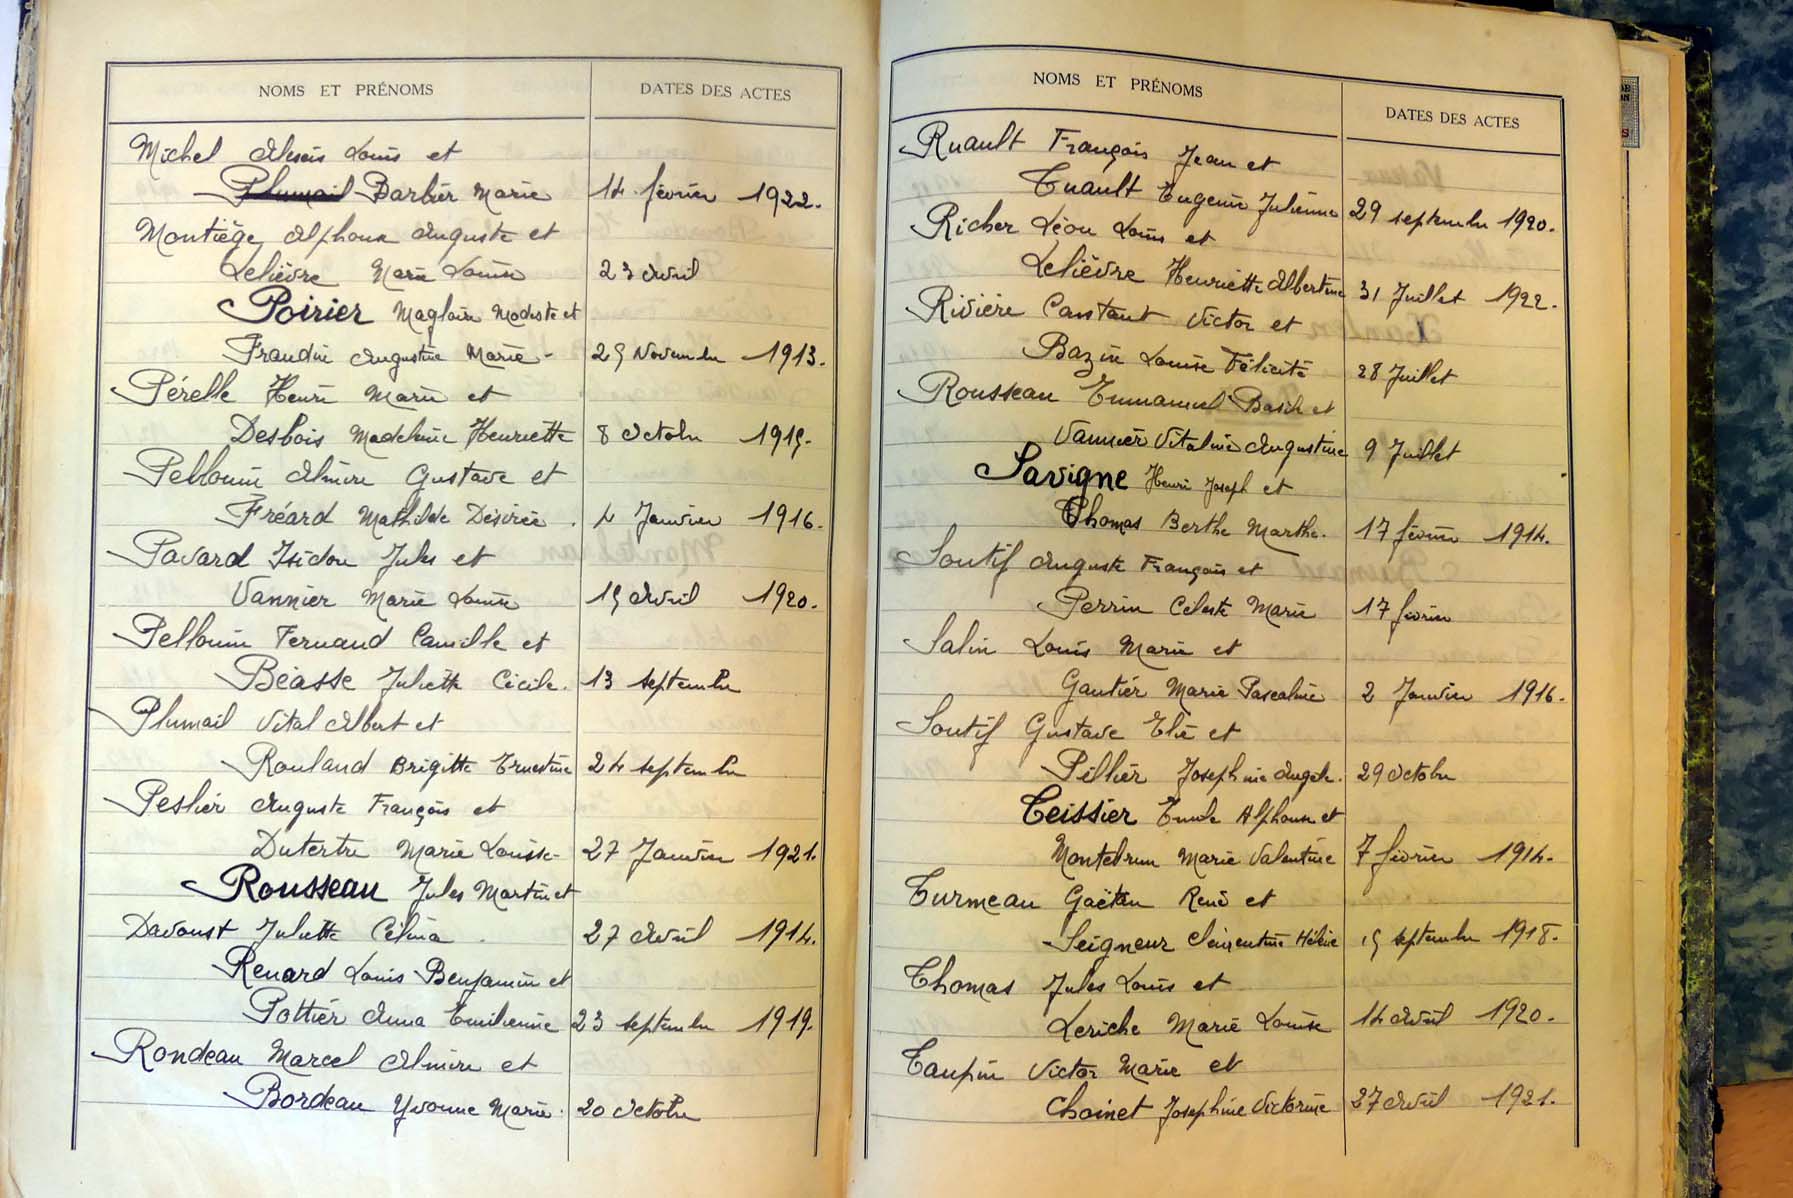 NOMS ET PRÉNOMS DATES DES ACTES
Michel Alexis Louis et
Plumail Barbier Marie 14 février 1922.
Montiège Alphonse Auguste et
Lelièvre Marie Louise 23 Avril
Poirier Magloire Modeste et
Fraudin Augustine Marie - 25 Novembre 1913.
Pérelle Henri Marie et
Desbois Madeleine Henriette 8 Octobre 1915.
Pellouin Almire Gustave et
Fréard Mathilde Désirée. 4 Janvier 1916.
Pavard Isidore Jules et
Vannier Marie Louise 15 Avril 1920.
Pellouin Fernand Camille et
Béasse Juliette Cécile. 13 septembre
Plumail Vital Albert et
Rouland Brigitte Ernestine 24 septembre
Peslier Auguste François et
Dutertre Marie Louise - 27 Janvier 1921.
Rousseau Jules Martin et
Davoust Juliette Célina. 27 Avril 1914.
Renard Louis Benjamin et
Pottier Anna Emilienne 23 septembre 1919.
Rondeau Marcel Almire et
Bordeau Yvonne Marie. 20 Octobre
NOMS ET PRÉNOMS DATES DES ACTES
Ruault François Jean et
Tuault Eugenie Julienne 29 septembre 1920.
Richer Léon Louis et
Lelièvre Henriette Albertine 31 Juillet 1922.
Rivière Constant Victor et
Bazin Louise Félicité 28 Juillet
Rousseau Emmanuel Basile et
Vannier Vitaline Augustine 9 Juillet
Savigne Henri Joseph et
Thomas Berthe Marthe. 17 février 1914.
Soutif Auguste François et
Perrin Céleste Marie 17 février
Salin Louis Marie et
Gautier Marie Pascaline 2 Janvier 1916.
Soutif Gustave Elie et
Pillier Josephine Angèle. 29 Octobre
Teissier Emile Alphonse et
Montebrun Marie Valentine 7 février 1914.
Turmeau Gaëtan René et
Seigneur Clémentine Hélène 15 septembre 1918.
Thomas Jules Louis et
Leriche Marie Louise 14 Avril 1920.
Taupin Victor Marie et
Choinet Josephine Victorine 27 Avril 1921.